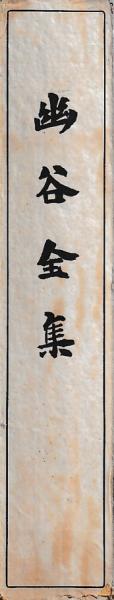 幽谷全集